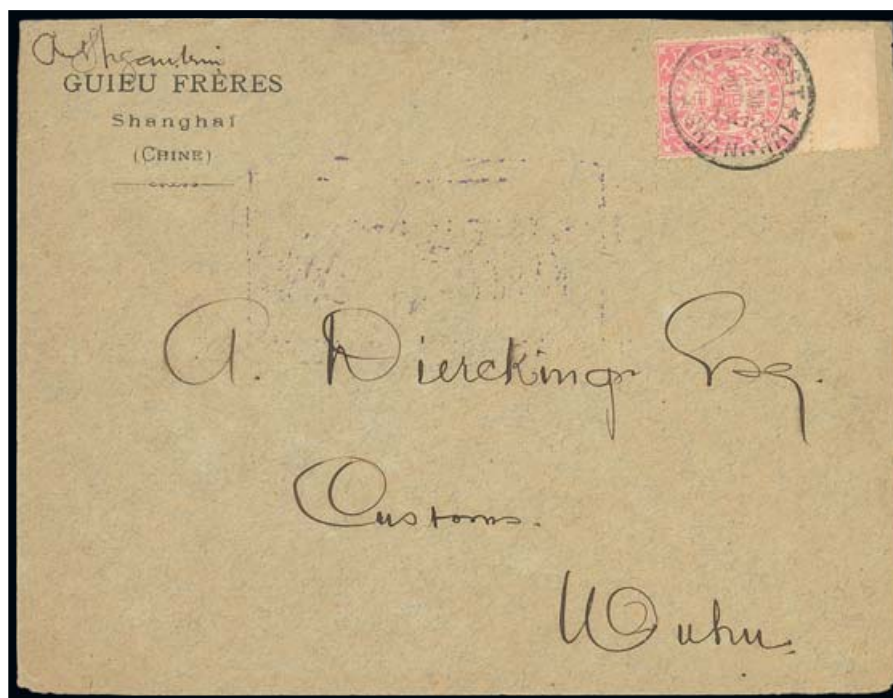 GUIEU FRÈRES
Shanghaï
(CHINE)
POST
A. Diercking Esq.
Customs.
Wuhu.